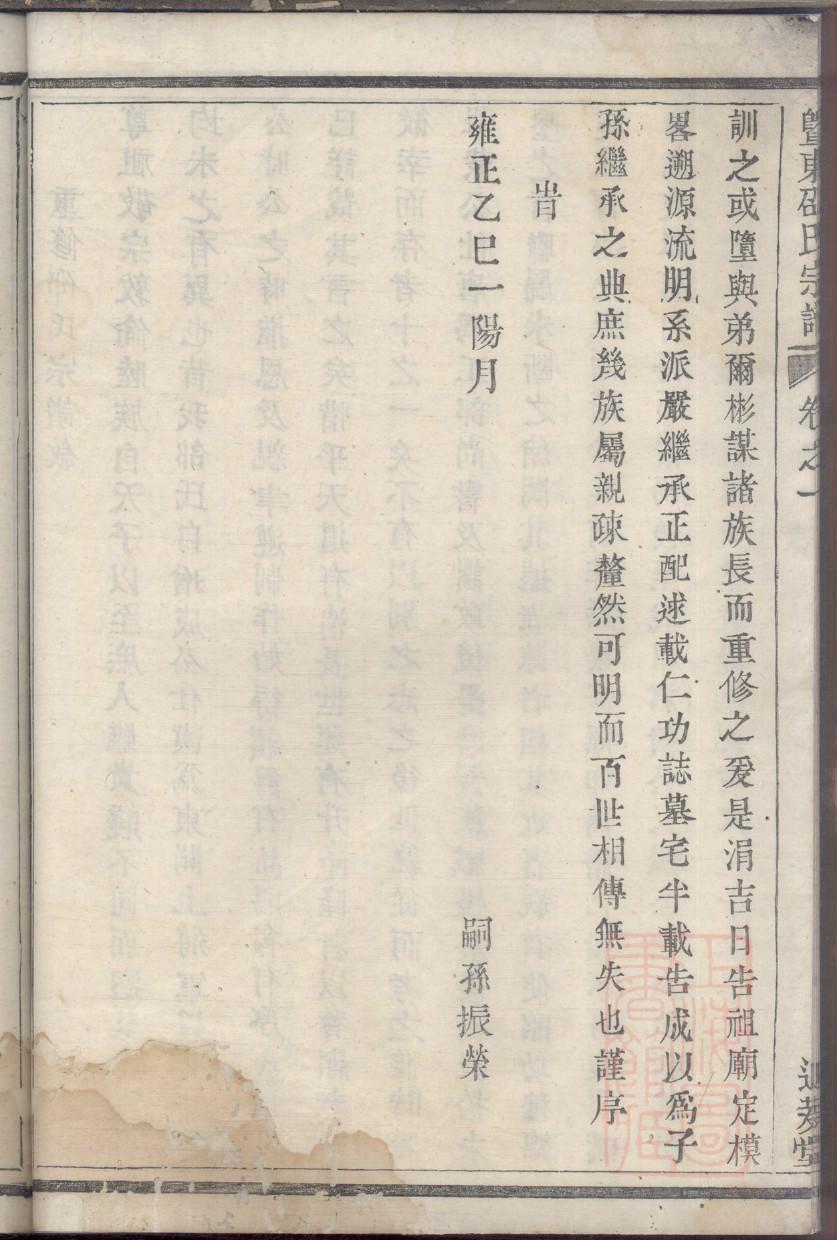 暨東邵氏宗譜 卷之一
訓之或墮與弟爾彬謀諸族長而重修之爰是涓吉日告祖廟定模
畧遡源流明系派嚴繼承正配逑載仁功誌墓宅半載告成以為子
孫繼承之典庶幾族屬親疎釐然可明而百世相傳無失也謹序
旹
雍正乙巳一陽月
嗣孫振榮